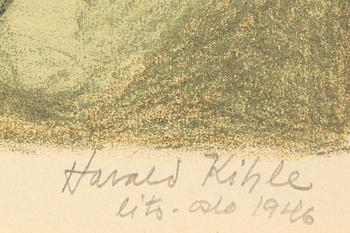 Harald Kihle
lito. oslo 1946